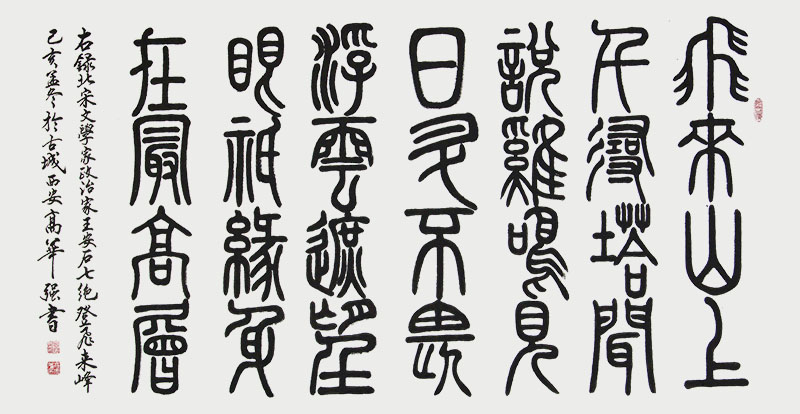 飛來山上
千尋塔聞
說雞鳴見
日升不畏
浮雲遮望
眼祇緣身
在最高層
右錄北宋文學家政治家王安石七絕登飛来峰
己亥孟冬於古城西安高華强書